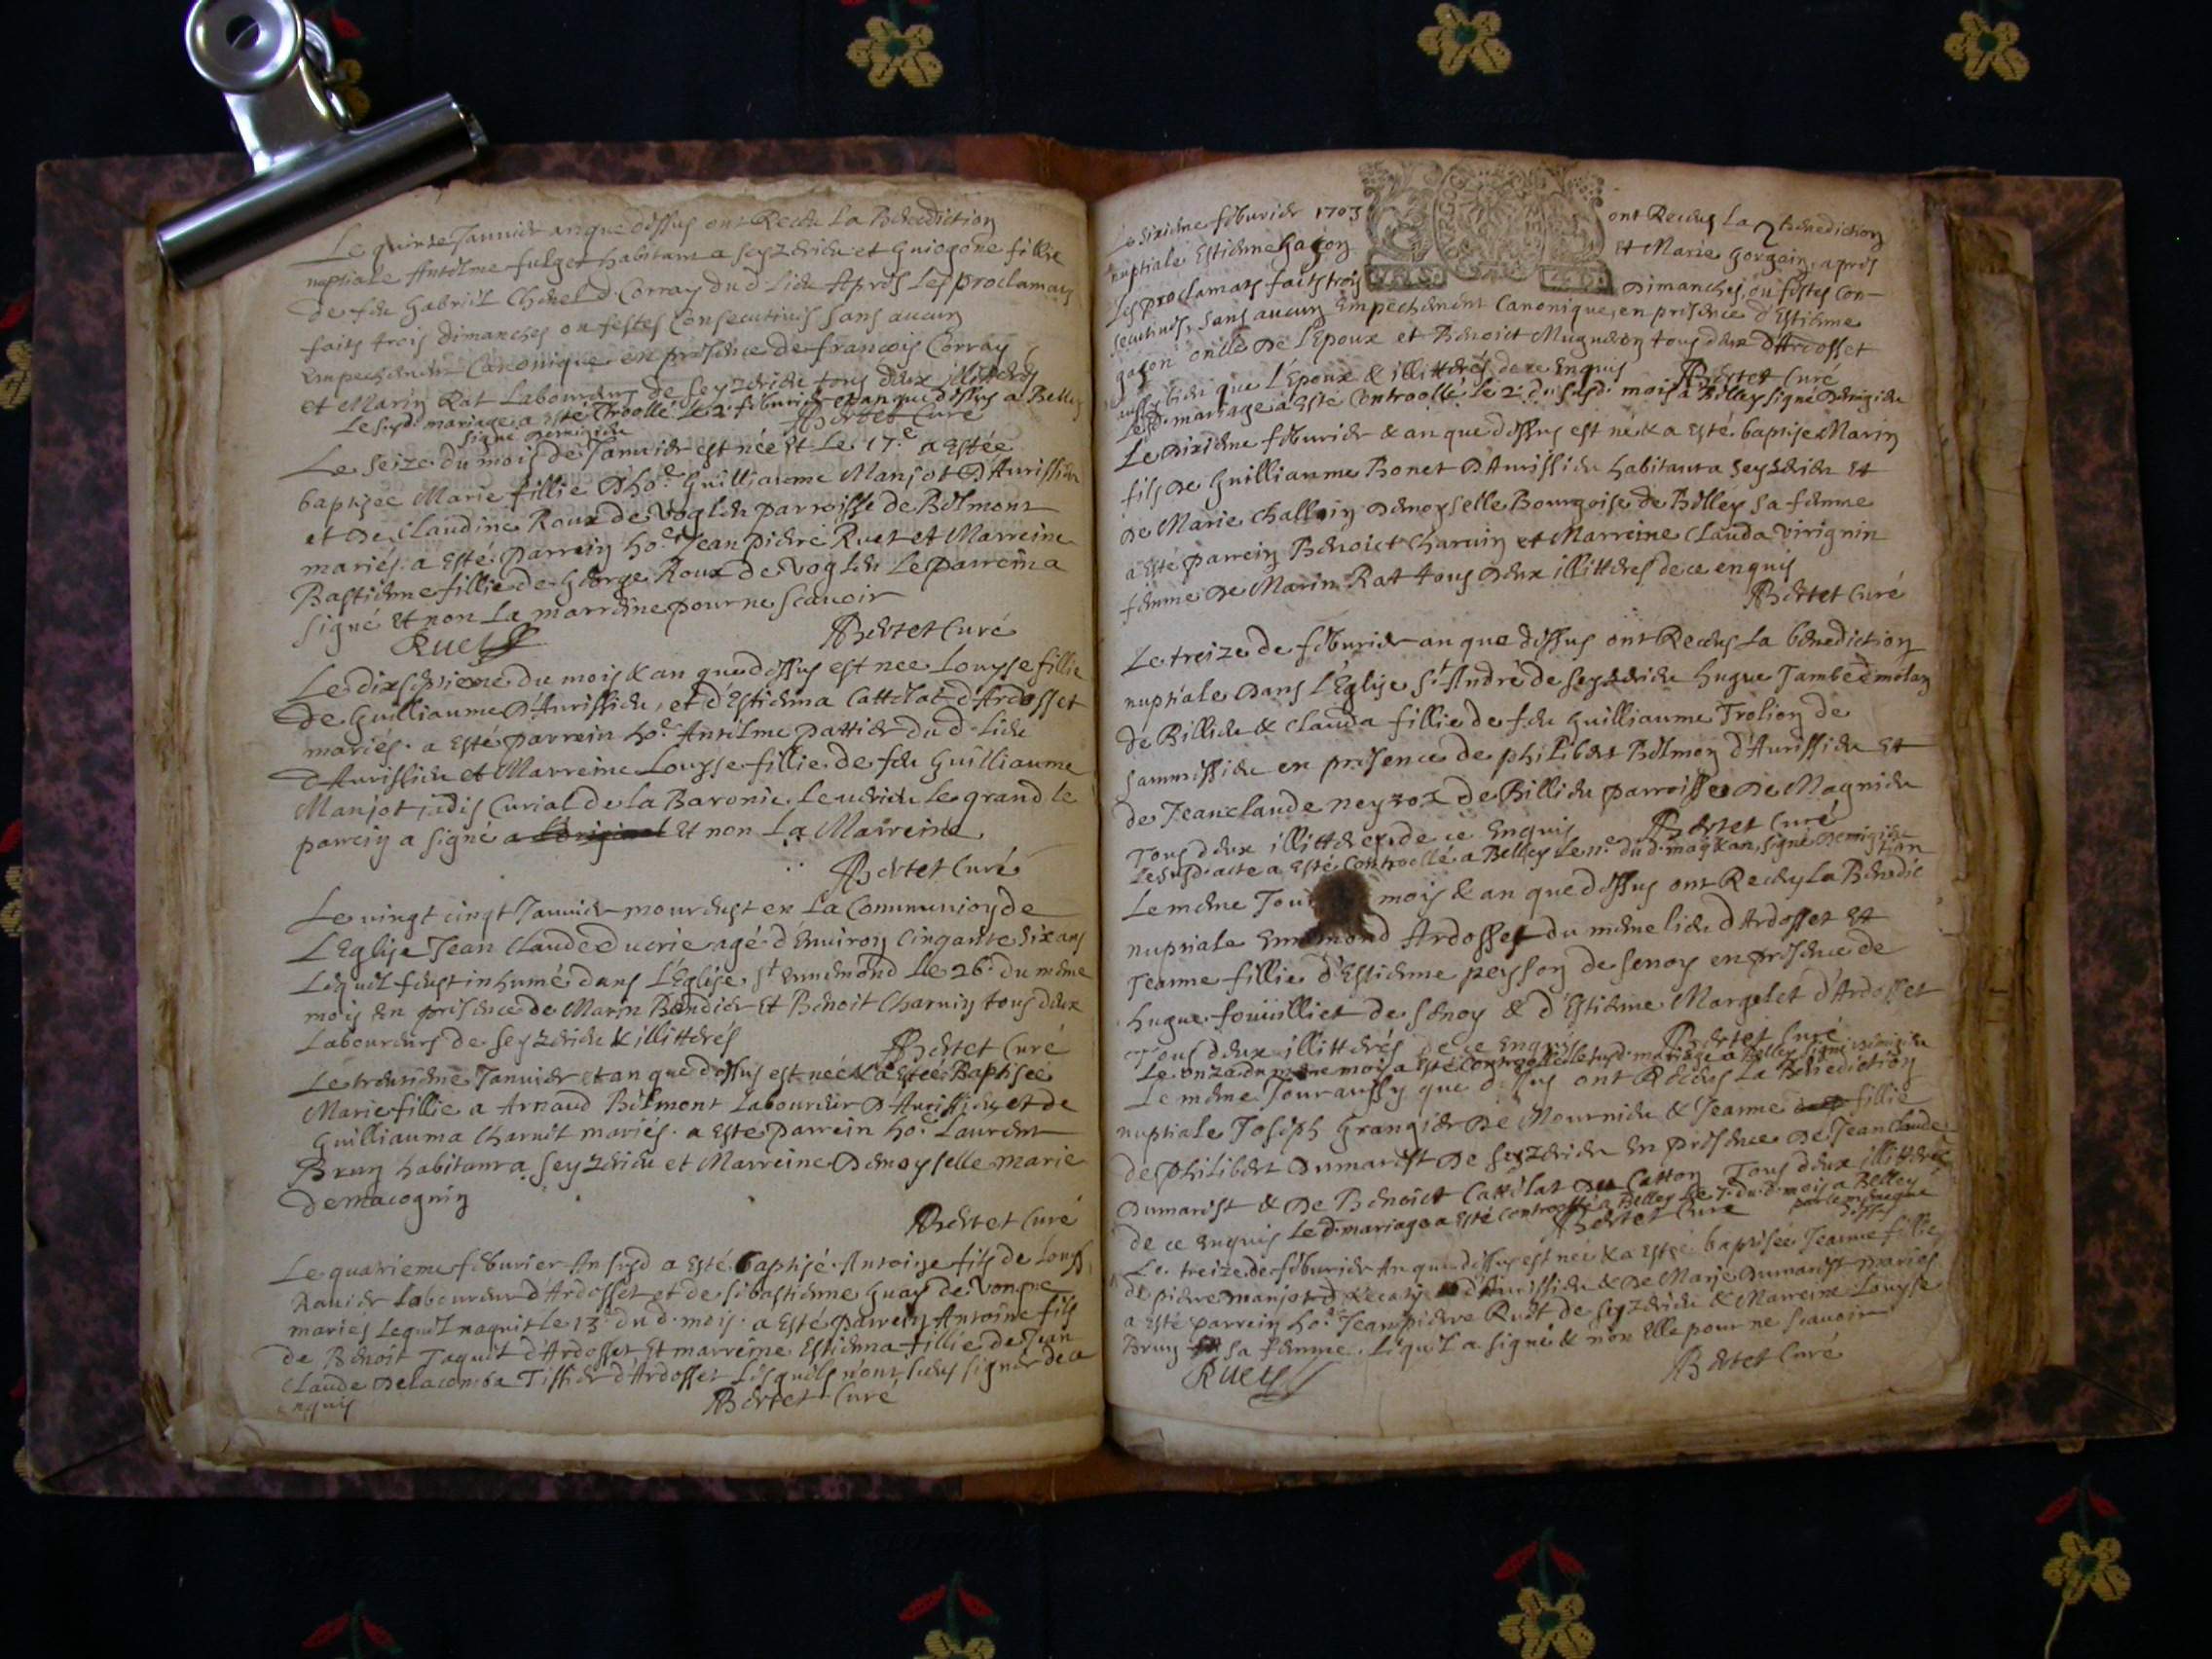 Le quinze Januier an que dessus ont Receu La Benediction
nuptiale Antelme fulget habitant a seyzerieu et Guiogone fillie
de feu Gabriel Chevel d. Corray dud. lieu Apres Les proclamats
faits trois dimanches ou festes Consecutiuis sans aucun
Empechement Canonique en presence de francois Corray
et Marin Rat Laboureurs de seyzerieu tous deux illitterés
Le susd. mariage a esté Croollé le 2. feburier et an que dessus a Belley
signé Demigieu Bertet Curé
Le seize du mois de Januier est née et Le 17.e a estée
baptisee Marie fillie d'ho.e Guilliaume Manjot d'Aurissieu
et de Claudine Roux de Voglen parroisse de Belmont
mariés. a Esté parrein ho.e Jean pierre Ruet et Marreine
Bastienne fillie de George Roux de Voglen Le parrein a
signé et non La marreine pour ne scauoir
Ruet Bertet Curé
Le dixseptieme du mois & an que dessus est nee Louyse fillie
de Guilliaume d'Aurissieu, et d'Estienna Cattelat d'Ardosset
mariés. a Esté parrein ho.e Antelme pattier du d. lieu
d'Aurissieu et Marreine Louyse fillie de feu Guilliaume
Manjot jadis Curial de la Baronie Leuerieu le grand le
parrein a signé a l'original Et non La Marreine
Bertet Curé
Le vingt cinqt Januier mourust en La Communion de
L'Eglise Jean Claude Ducrie agé d'Enuiron Cinqante six ans
Lequel feust inhumé dans L'Eglise, St Ennemond Le 26.e du meme
mois en presence de Marin Bendier Et Benoit Charuin tous deux
Laboureurs de seyzerieu & illitterés
Bertet Curé
Le trenteme Januier et an que dessus est née & a estée Baptisee
Marie fillie a Arnaud Belmont Laboureur d'Aurissieu et de
Guilliauma Charuit mariés. a Esté parrein ho.e Laurent
Brun habitant a seyzerieu et Marreine Demoyselle marie
demacognin
Bertet Curé
Le quatrieme feburier An susd a Esté baptisé Antoine fils de Louys
Rauier Laboureur d'Ardosset et de sebastienne Guay de Vongne
maries Lequel naquit le 13.e du d. mois. a Esté parrein Antoine fils
de Benoit Jaquet d'Ardosset Et marreine Estienna fillie de Jean
Claude Delacomba Tissier d'Ardosset Lesquels n'ont sceu signer de ce
enquis
Bertet Curé
Le sixieme feburier 1703 ont Receus La Benediction
nuptiale Estienne Gaçon et Marie Gorgein, apres
Les proclamats faits trois Dimanches, ou festes Con-
secutiues, sans aucun Empechement Canonique, en presence d'Estienne
gaçon oncle de L'Epoux et Benoict Mugneron tous deux d'Ardosset
aussy bien que L'Epoux & illitterés de ce Enquis Bertet Curé
Le d. mariage a Esté Controollé Le 2.e du susd. mois a Belley signé Demigieu
Le Dixieme feburier & an que dessus est né & a esté baptisé Marin
fils de Guilliaume Bonet d'Aurissieu habitant a seyzerieu Et
de Marie Challein Demoyselle Bourgoise de Belley sa femme
a esté parrein Benoict Charuin et Marreine Clauda Virignin
femme de Marin Rat tous deux illitterés de ce enquis
Bertet Curé
Le treize de feburier an que dessus ont Receus La benediction
nuptiale dans L'Eglise St André de seyzerieu hugue Jambe demolan
de Billieu & Clauda fillie de feu Guilliaume Trolion de
sammissieu en presence de philibert Belmon d'Aurissieu Et
de Jean claude neyrox de Billieu parroisse de Magnieu
Tous deux illitterés de ce Enquis Bertet Curé
Le susd. acte a esté Controollé a Belley Le 11.e du d. mois & an, signé Demigieu
Le meme Jour mois & an que dessus ont Receu La Benedic tion
nuptiale Ennemond Ardosset du meme lieu d'Ardosset Et
Jeanne fillie d'Estienne peysson de senoy en presence de
hugue fouillet de senoy & d'Estienne Margelet d'Ardosset
tous deux illitterés de ce Enquis Bertet Curé
Le onze du meme mois a Esté Controollé le susd. mariage a Belley signé Demigieu
Le meme Jour aussy que dessus ont Receus La Benediction
nuptiale Joseph Grangier de Mournieu & Jeanne fillie
de philibert Dumarest de seyzerieu en presence de Jean Claude
Dumarest & de Benoict Cattelat du Catton Tous deux illitterés
de ce enquis Le d. mariage a Esté Controollé a Belley Le 7. du d. mois a Belley
Bertet Curé par le meme que dessus
Le treize de feburier An que dessus est née & a Estée baptisée Jeanne fillie
de pierre manjot d'Aurissieu & de Marie Dumarest mariés
a Esté parrein ho.e Jean pierre Ruet de seyzerieu & Marreine Louyse
Brun sa femme. Lequel a signé & non Elle pour ne scauoir
Ruet Bertet Curé